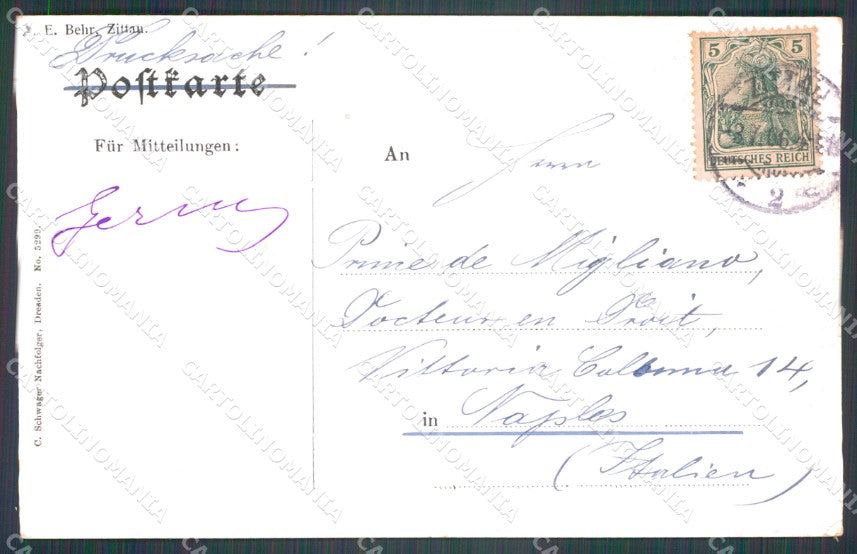 E. Behr, Zittau.
Drucksache!
Postkarte
Für Mitteilungen:
An
Herrn
Prince de Migliano,
Docteur en Droit,
Vittoria Colonna 14,
in Naples
(Italien)
C. Schwager Nachfolger, Dresden. No. 5299.
5 5
DEUTSCHES REICH
ZITTAU
2
CARTOLINOMANIA